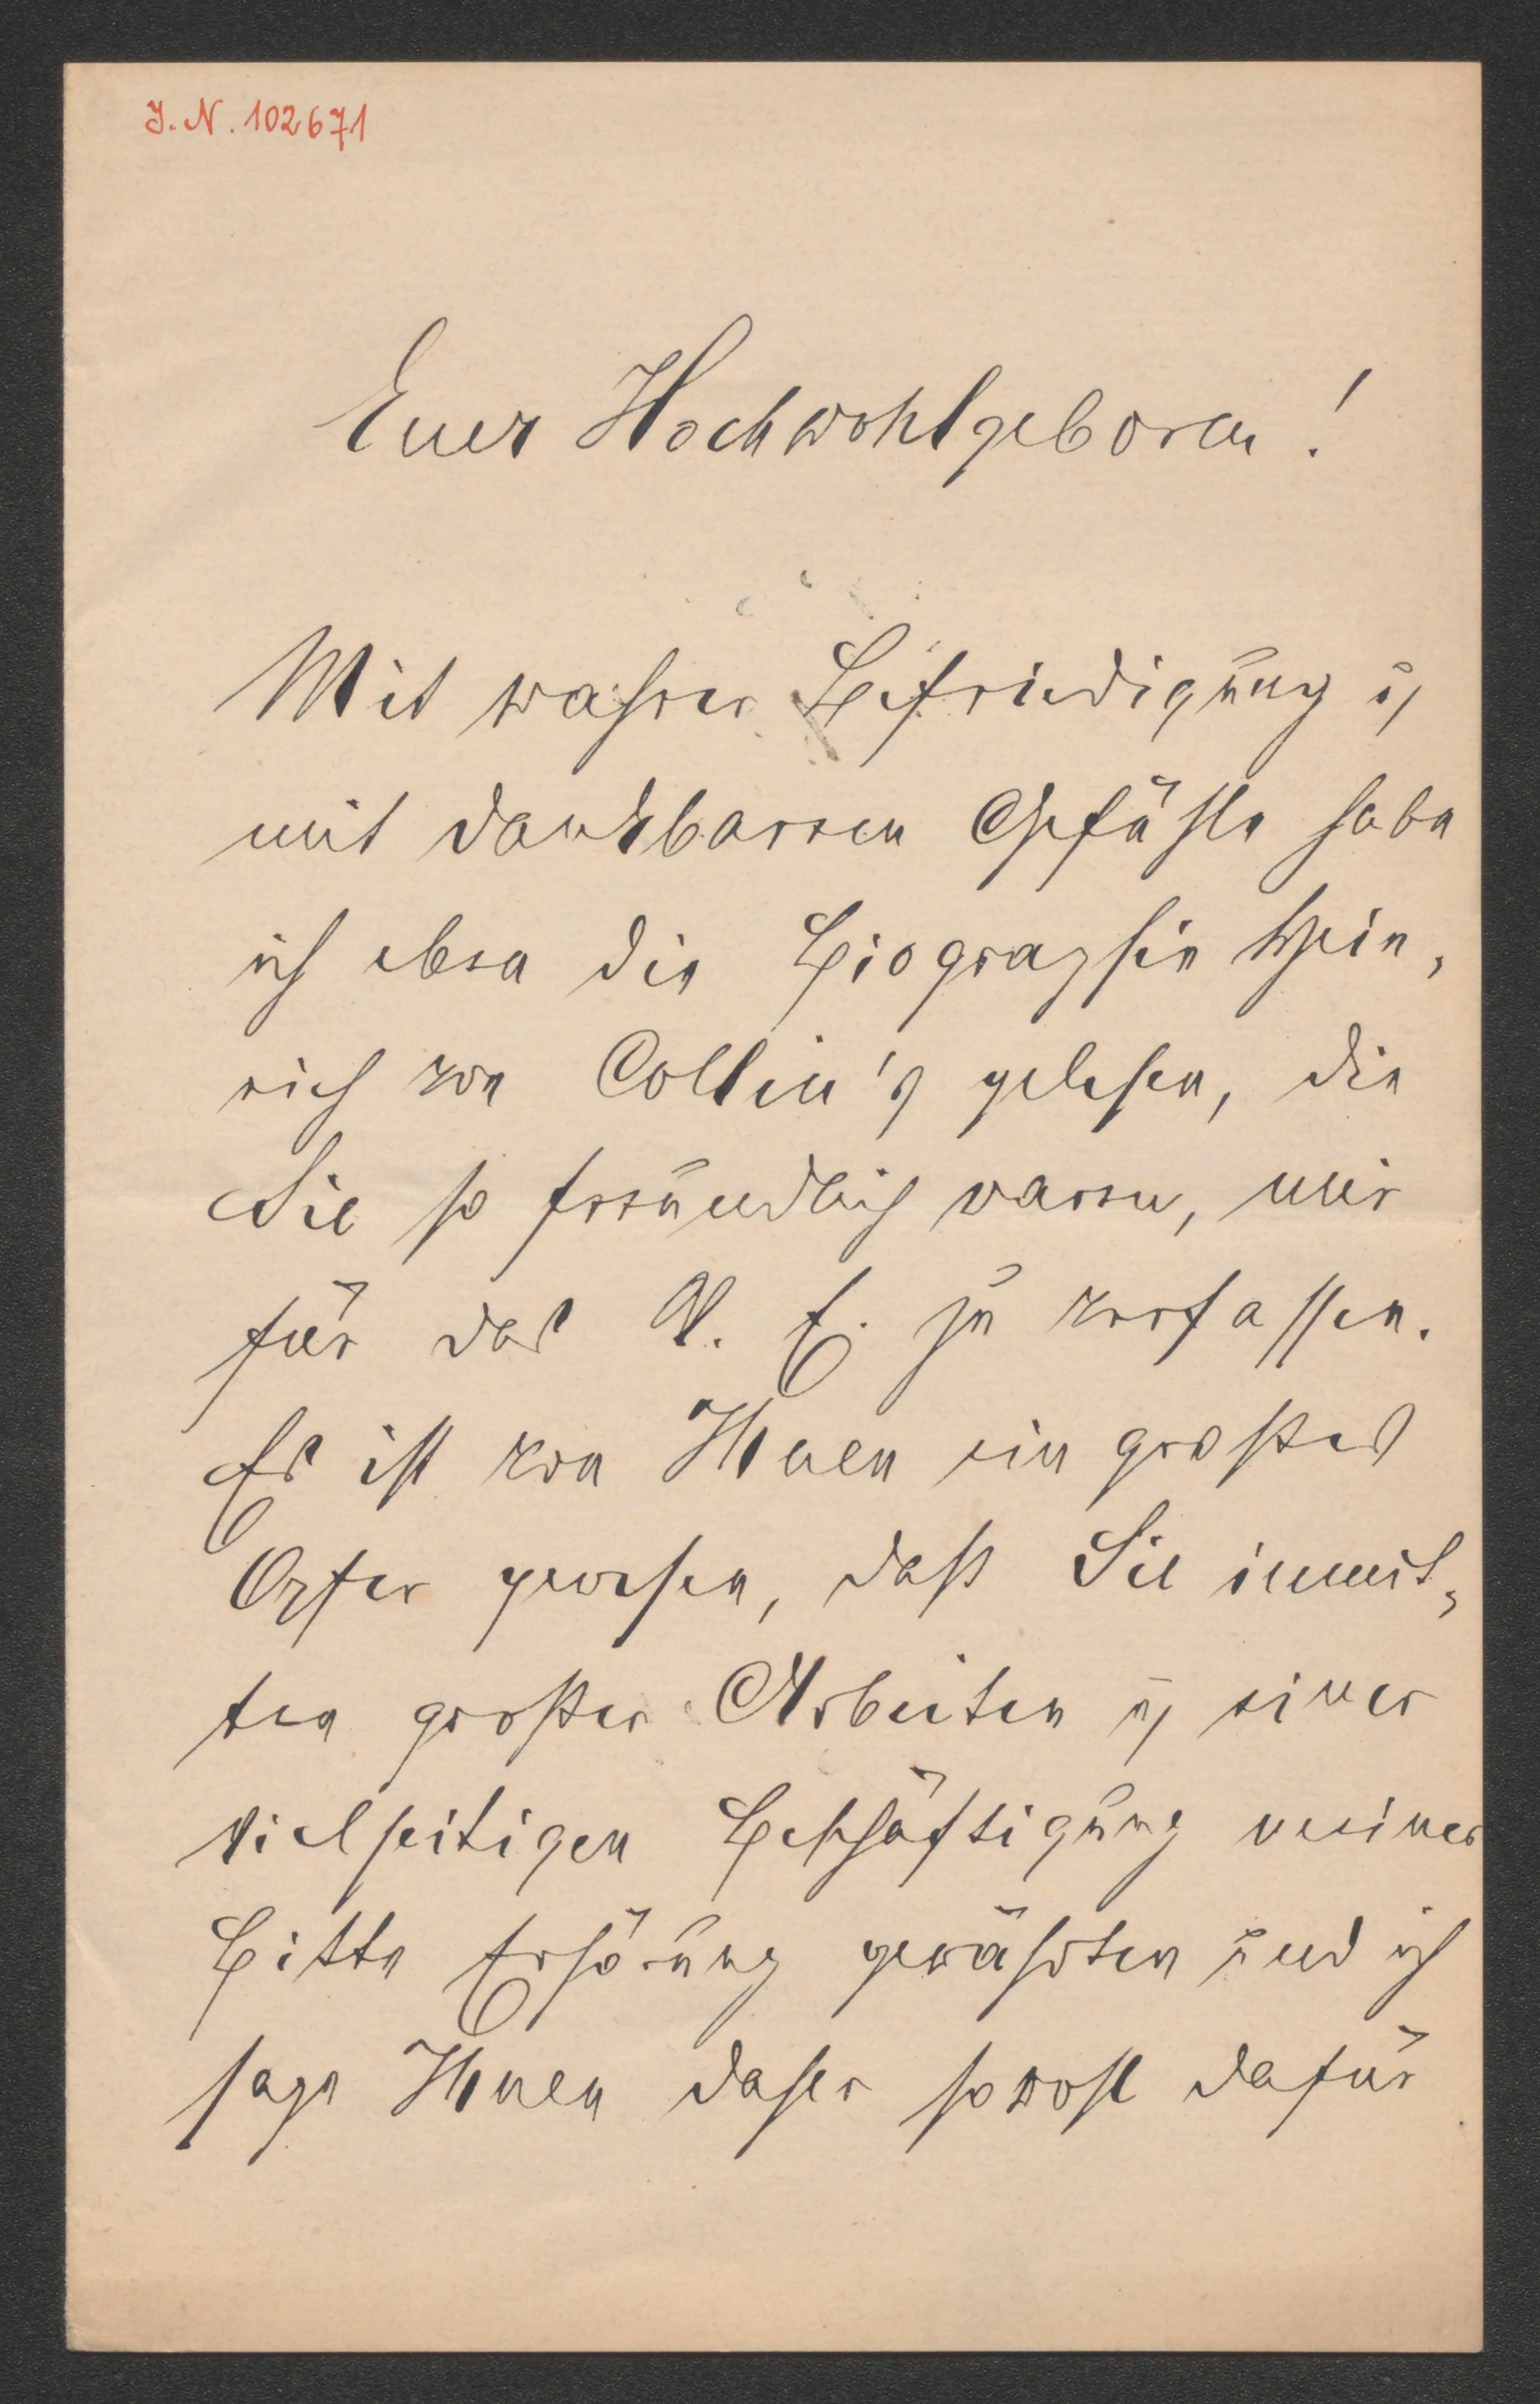 J. N. 102671
Euer Hochwohlgeboren!
Mit wahrer Befriedigung u
mit dankbarem Gefühle habe
ich eben die Biographie Hein-
rich von Collin's gelesen, die
Sie so freundlich waren, mir
für das N. E. zu verfassen.
Es ist von Ihnen ein großes
Opfer gewesen, daß Sie inmit-
ten großer Arbeiten u einer
vielseitigen Beschäftigung meiner
Bitte Erhörung gewährten und ich
sage Ihnen daher sowohl dafür